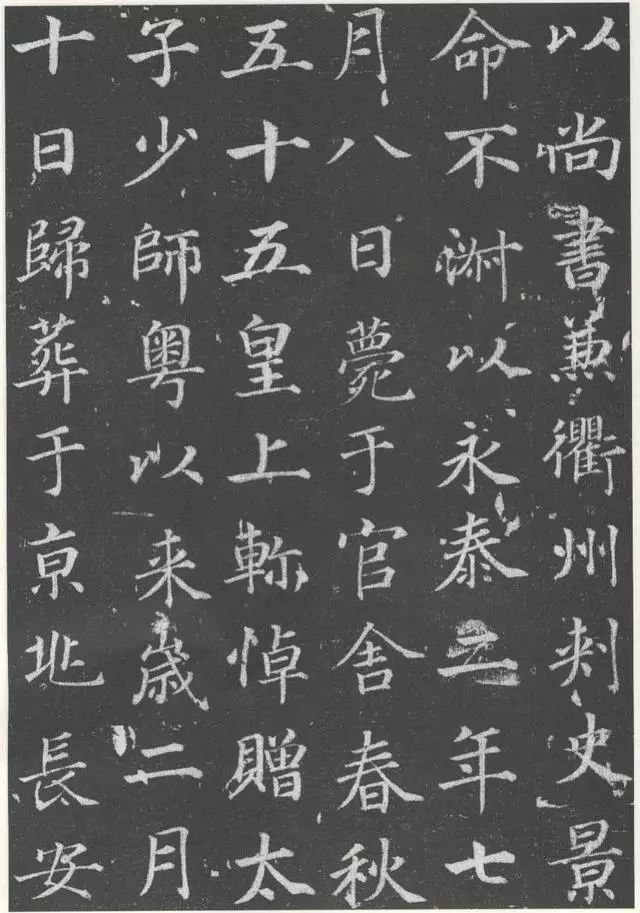 以尚書兼衢州刺史景
命不融以永泰二年七
月八日薨于官舍春秋
五十五皇上軫悼贈太
子少師粵以来歲二月
十日歸葬于京兆長安